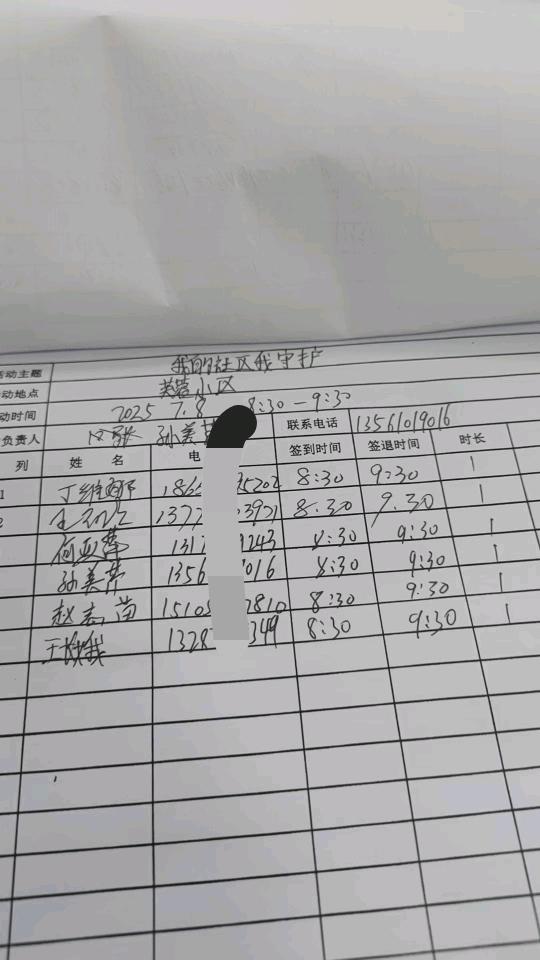 活动主题 我的社区我守护
动地点 芙蓉小区
动时间 2025 7.8 8:30-9:30
负责人 孙美 联系电话 13561019016
列 姓名 电 签到时间 签退时间 时长
1 丁维 186 35202 8:30 9:30 1
2 1377 3921 8:30 9.30 1
何亚萍 1317 1243 8:30 9:30 1
孙美 1356 9016 8:30 9:30 1
赵志苗 15105 2810 8:30 9:30 1
1328 349 8:30 9:30 1